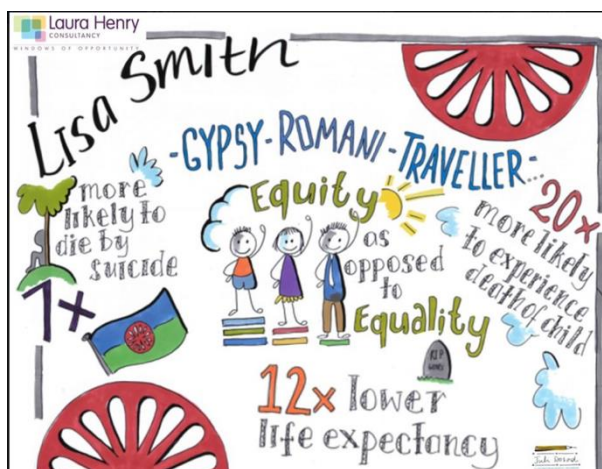 Laura Henry
CONSULTANCY
WINDOWS OF OPPORTUNITY
Lisa Smith
-GYPSY-ROMANI-TRAVELLER-...
7x
more
likely to
die by
suicide
Equity
as
opposed
to
Equality
20x
more likely
to experience
death of child
RIP
12x lower
life expectancy